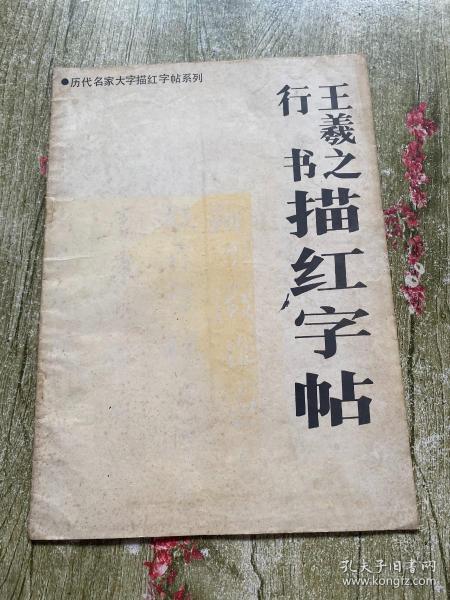 ●历代名家大字描红字帖系列
王羲之
行书
描红字帖
孔夫子旧书网
www.kongfz.com